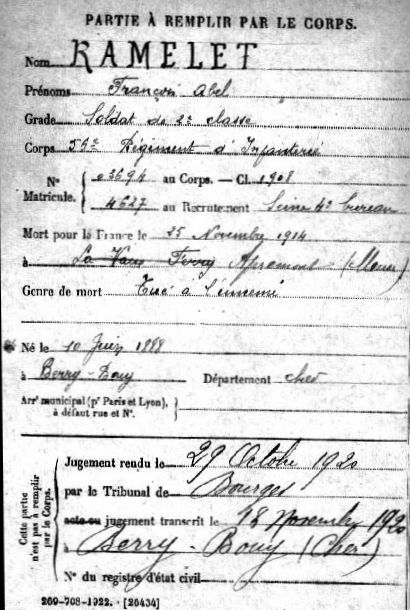 PARTIE À REMPLIR PAR LE CORPS.
Nom RAMELET
Prénoms François Abel
Grade Soldat de 2e classe
Corps 56e Régiment d'Infanterie
N° Matricule. { 03694 au Corps. — Cl. 1908
4627 au Recrutement Seine 4e bureau
Mort pour la France le 25 Novembre 1914
à La Vaux Ferry Apremont (Meuse)
Genre de mort Tué à l'ennemi
Né le 10 Juin 1888
à Berry-Bouy Département Cher
Arrt municipal (pr Paris et Lyon), à défaut rue et N°. }
Cette partie n'est pas à remplir par le Corps. {
Jugement rendu le 29 Octobre 1920
par le Tribunal de Bourges
acte ou jugement transcrit le 18 Novembre 1920
à Berry-Bouy (Cher)
N° du registre d'état civil
269-708-1922. [26434]